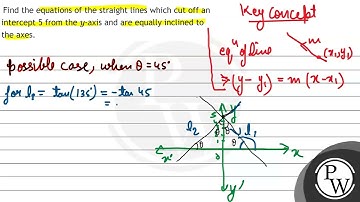 Find the equations of the straight lines which cut off an
intercept 5 from the y-axis and are equally inclined to
the axes.
Key Concept
m
(x₁,y₁)
eqⁿ of line
⇒ (y - y₁) = m (x - x₁)
possible case, when θ = 45°
for l₂ = tan(135°) = -tan 45
=
y
5
l₂
l₁
θ
θ
θ
θ
x'
0
x
y'
P
W